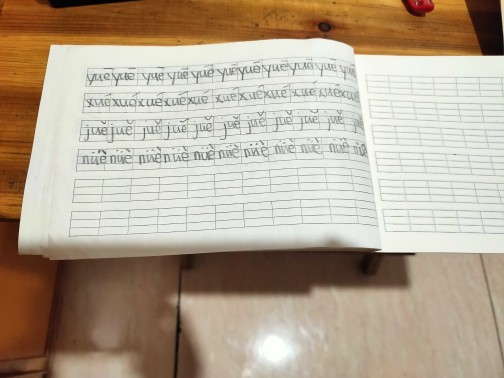 yuē yuē yuē yuē yuē yuē yuē yuē yuē yuē yuē
xué xué xué xué xué xué xué xué xué xué xué
juě juě juě juě juě juě juě juě juě juě
nüè nüè nüè nüè nüè nüè nüè nüè nüè nüè nüè